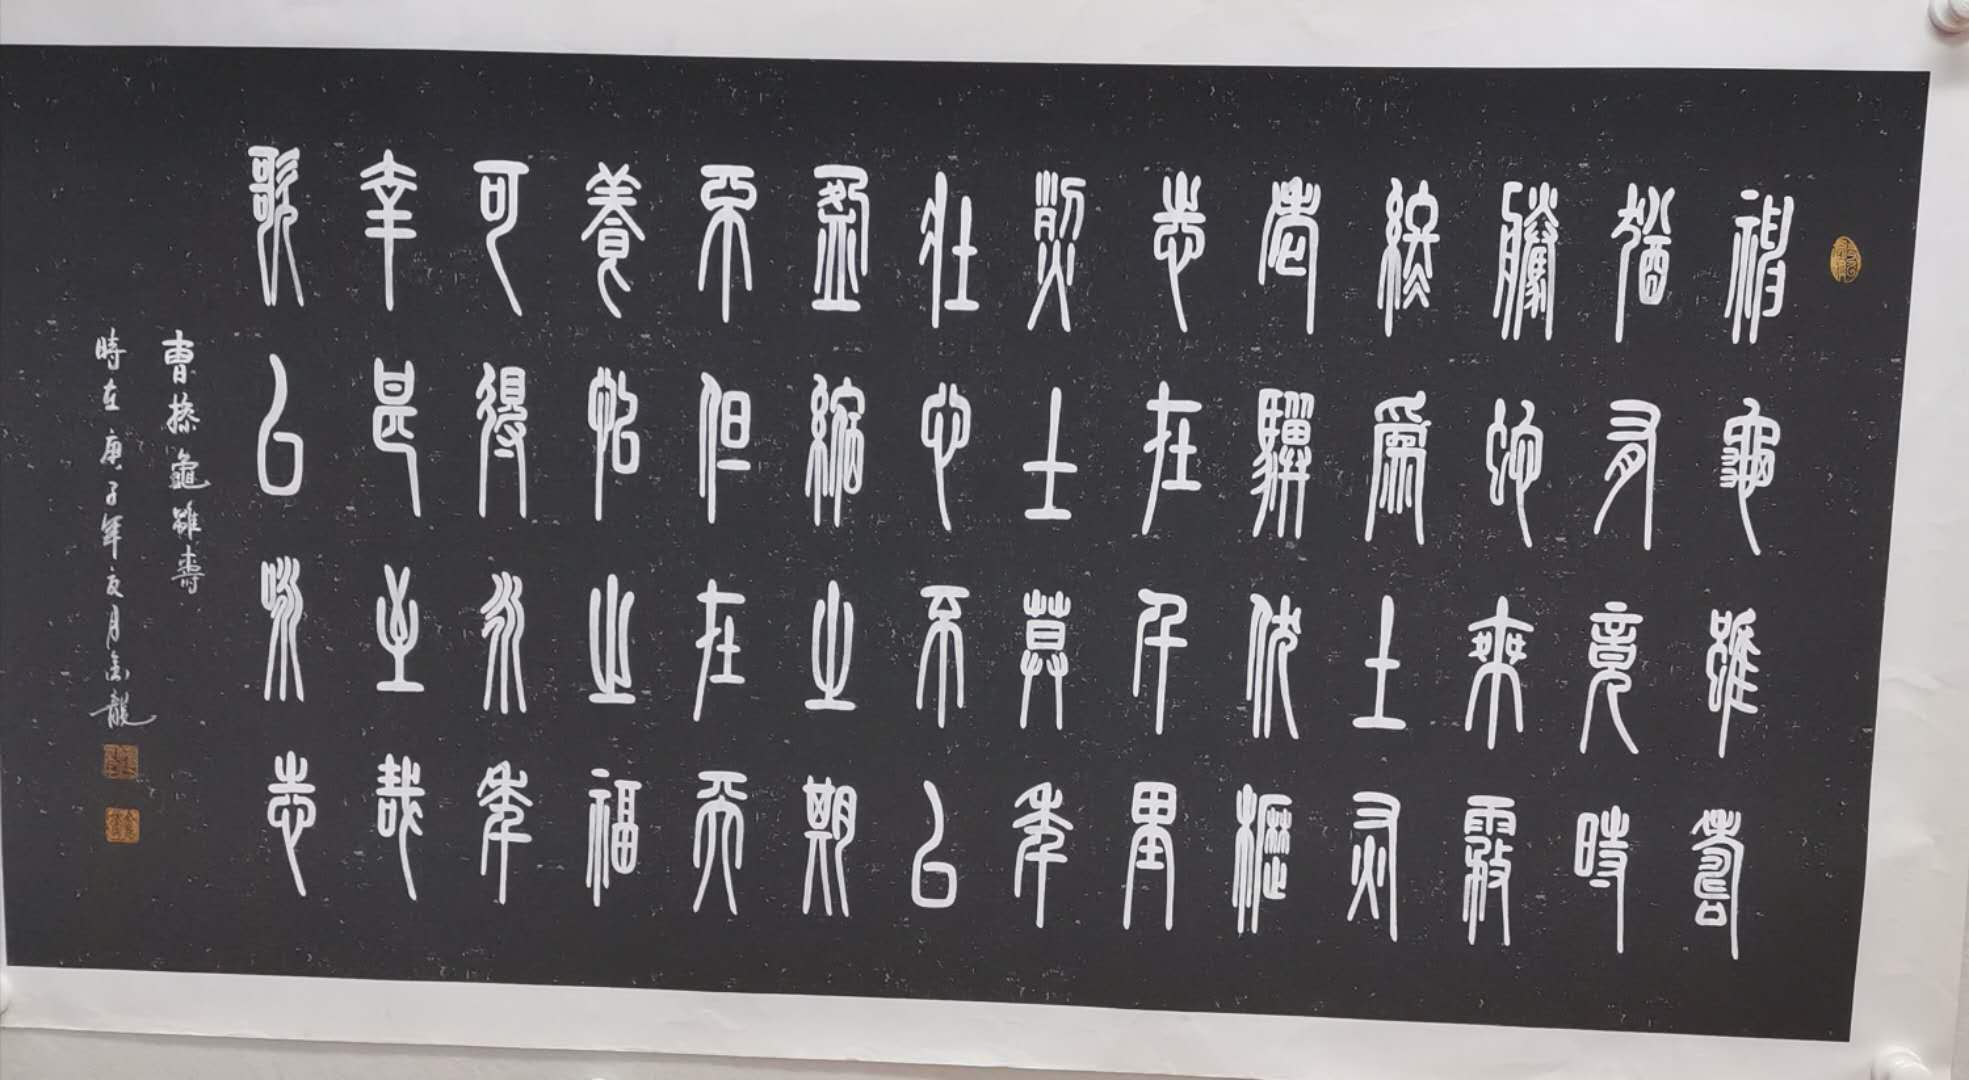 神龜雖壽
猶有竟時
騰蛇乘霧
終為土灰
老驥伏櫪
志在千里
烈士莫年
壯心不已
盈縮之期
不但在天
養怡之福
可得永年
幸甚至哉
歌以詠志
曹操龜雖壽
時在庚子年夏月龍